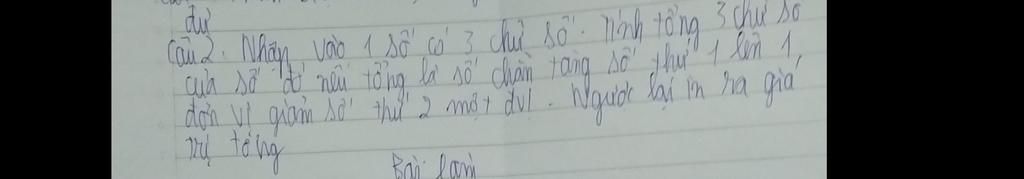 dư
Câu 2. Nhập vào 1 số có 3 chữ số. Tính tổng 3 chữ số
của số đó nếu tổng là số chẵn tăng số thứ 1 lên 1
đơn vị giảm số thứ 2 một đvị. Ngược lại in ra giá
trị tổng
Bài làm